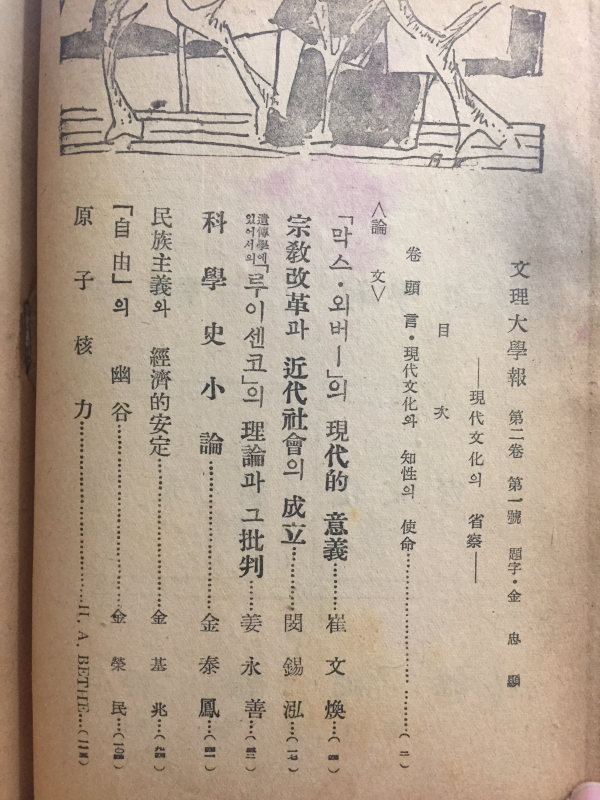 文理大學報 第二卷 第一號 題字·金忠顯
——現代文化의 省察——
目次
卷頭言·現代文化와 知性의 使命……(二)
<論文>
「막스·외버ー」의 現代的 意義……崔文煥…(四)
宗敎改革과 近代社會의 成立……閔錫泓…(一七)
遺傳學에 있어서의 「루이센코」의 理論과 그 批判……姜永善…
科學史小論……金泰鳳…
民族主義와 經濟的安定……金基兆…
「自由」의 幽谷……金榮民…
原子核力……H. A. BETHE…